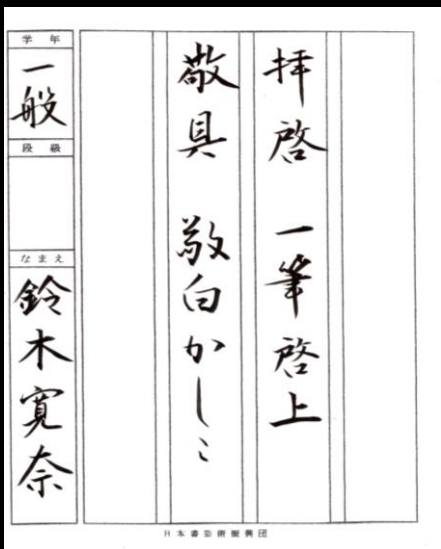 拝啓 一筆啓上
敬具 敬白かしこ
学年
一般
段級
なまえ
鈴木寛奈
日本書芸術振興団